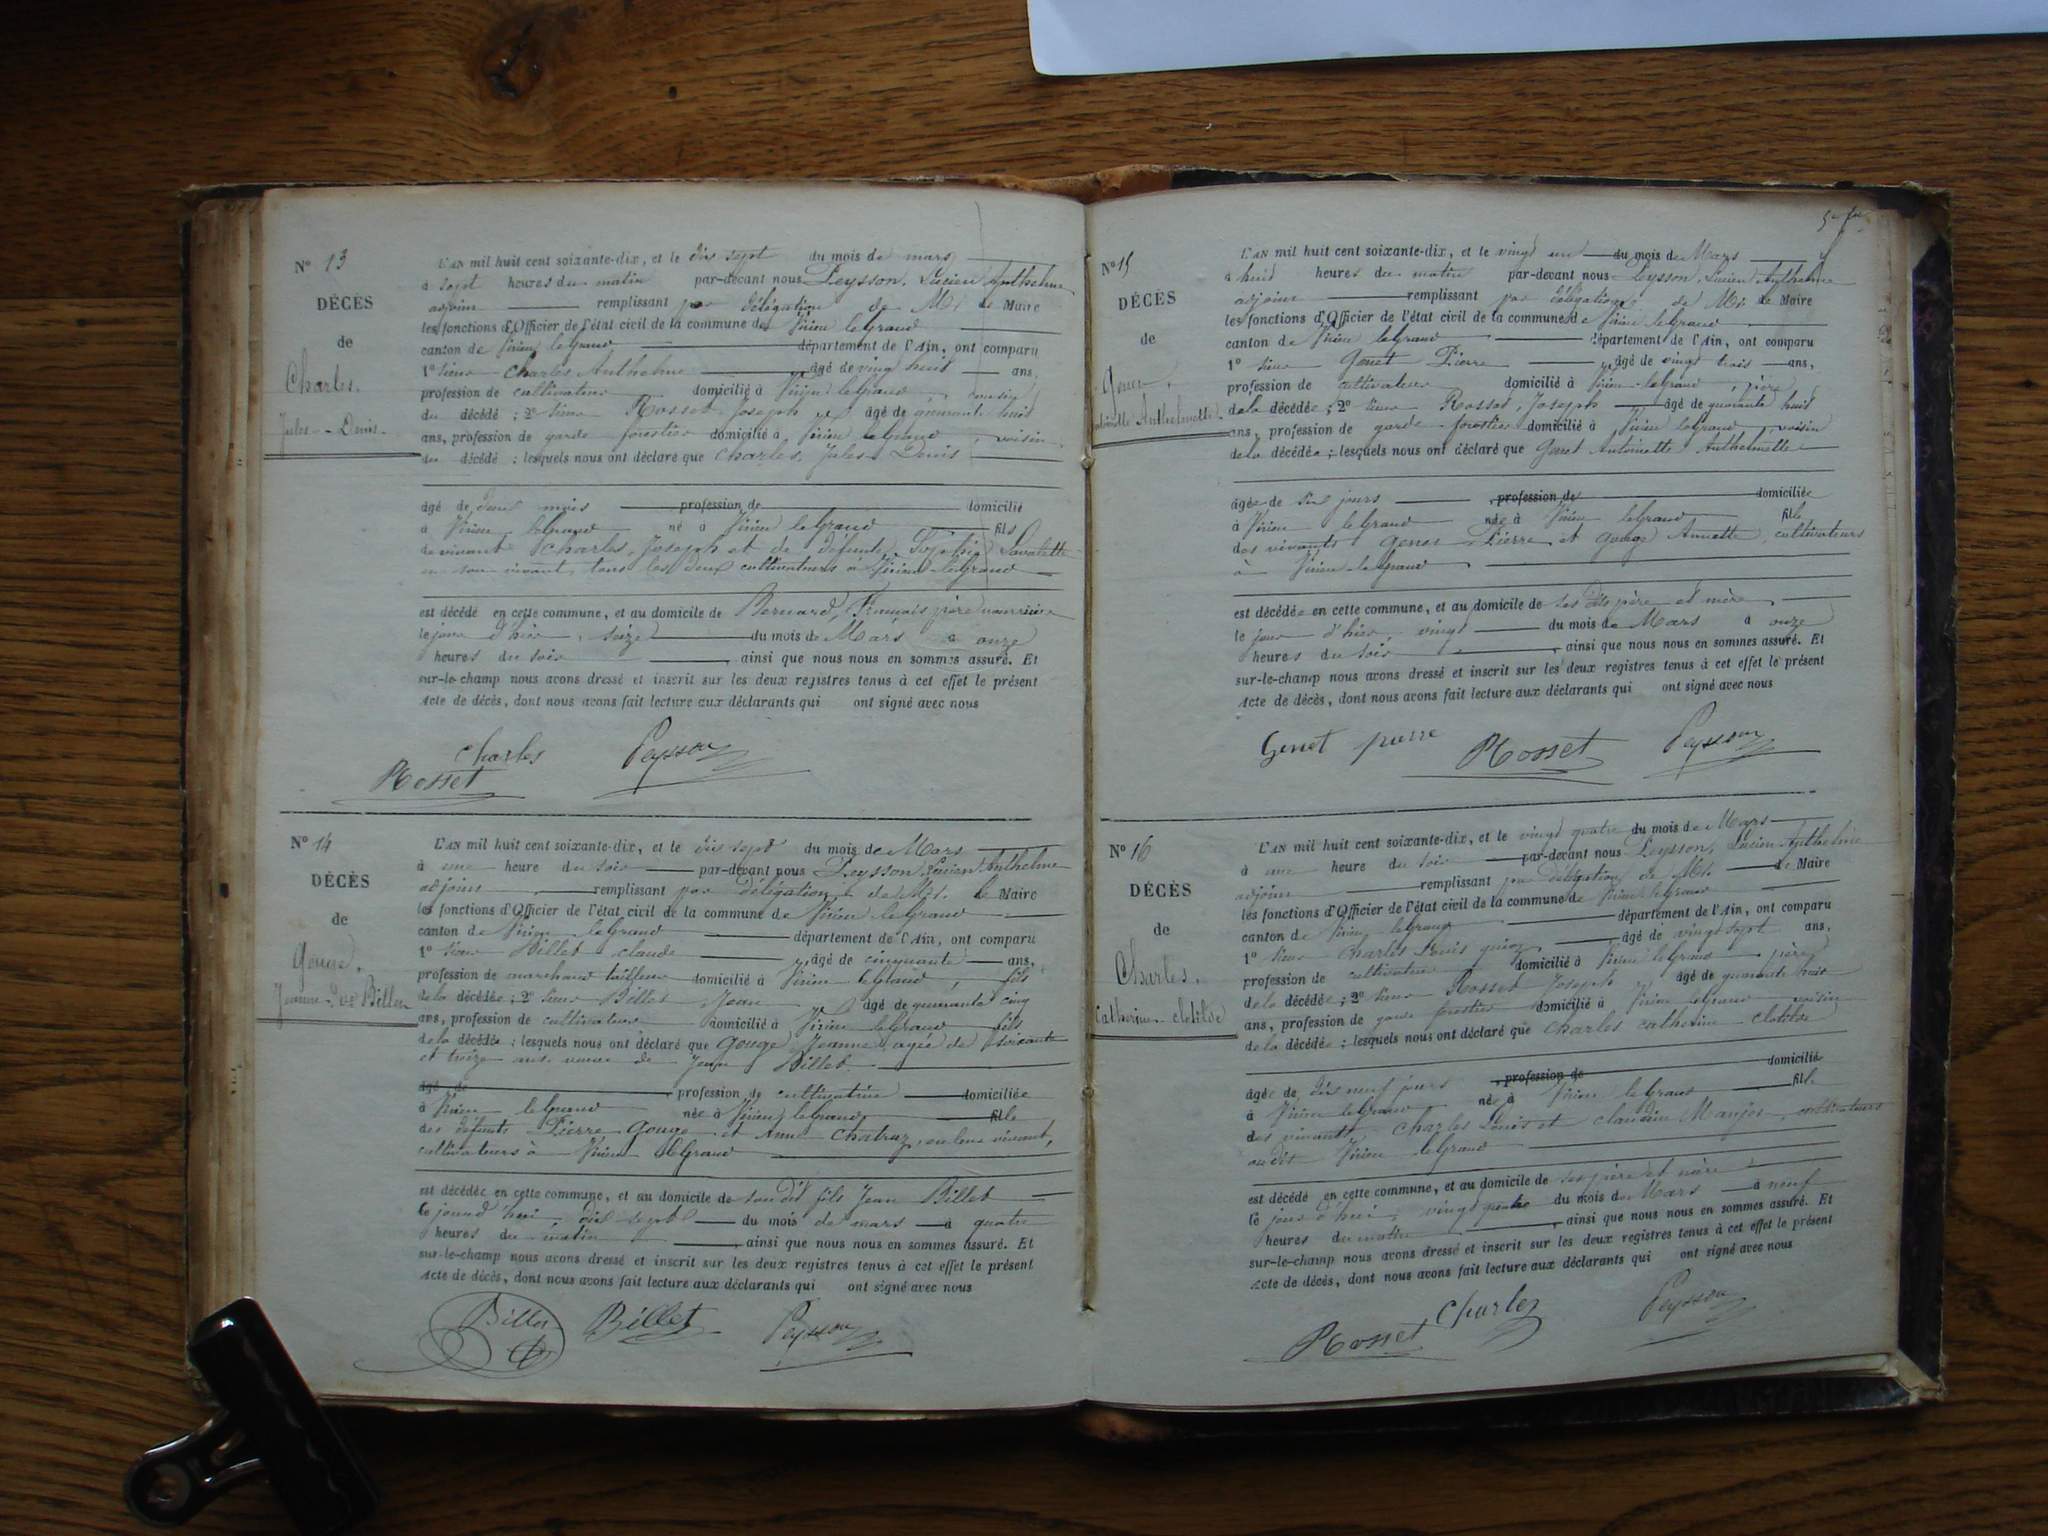 N° 13
DÉCÈS
de
Charles.
Jules - Denis -
L'AN mil huit cent soixante-dix, et le dix sept du mois de mars
à sept heures du matin par-devant nous Peysson, Lucien Anthelme
adjoint remplissant par délégation de Mr le Maire
les fonctions d'Officier de l'état civil de la commune de Virieu leGrand
canton de Virieu leGrand département de l'Ain, ont comparu
1° sieur Charles Anthelme âgé de vingt huit ans,
profession de cultivateur domicilié à Virieu leGrand, cousin
du décédé ; 2° sieur Rosset Joseph âgé de quarante huit
ans, profession de garde forestier domicilié à Virieu leGrand, voisin
du décédé ; lesquels nous ont déclaré que Charles, Jules Denis
âgé de deux mois profession de domicilié
à Virieu leGrand né à Virieu leGrand fils
de vivant Charles, Joseph et de défunte Sophie Lavalette
en son vivant, tous les deux cultivateurs à Virieu-leGrand
est décédé en cette commune, et au domicile de Bernard, François père nourricier
le jour d'hier, seize du mois de Mars à onze
heures du soir ainsi que nous nous en sommes assuré. Et
sur-le-champ nous avons dressé et inscrit sur les deux registres tenus à cet effet le présent
Acte de décès, dont nous avons fait lecture aux déclarants qui ont signé avec nous
Charles Peysson
Rosset
N° 14
DÉCÈS
de
Gouge,
Jeanne Vve Billet
L'AN mil huit cent soixante-dix, et le dix sept du mois de Mars
à une heure du soir par-devant nous Peysson Lucien Anthelme
adjoint remplissant par délégation de Mr. le Maire
les fonctions d'Officier de l'état civil de la commune de Virieu-leGrand
canton de Virieu leGrand département de l'Ain, ont comparu
1° sieur Billet Claude âgé de cinquante ans,
profession de marchand tailleur domicilié à Virieu leGrand, fils
de la décédée ; 2° sieur Billet Jean âgé de quarante cinq
ans, profession de cultivateur domicilié à Virieu leGrand fils
de la décédée ; lesquels nous ont déclaré que Gouge Jeanne, agée de soixante
et treize ans veuve de Jean Billet
âgé de profession de cultivatrice domiciliée
à Virieu leGrand née à Virieu leGrand fille
des défunts Pierre Gouge et Anne Chatraz, en leur vivant,
cultivateurs à Virieu leGrand
est décédée en cette commune, et au domicile de son dit fils Jean Billet
le jourd'hui, dix sept du mois de mars à quatre
heures du matin ainsi que nous nous en sommes assuré. Et
sur-le-champ nous avons dressé et inscrit sur les deux registres tenus à cet effet le présent
Acte de décès, dont nous avons fait lecture aux déclarants qui ont signé avec nous
Billet Billet Peysson
N° 15
DÉCÈS
de
Genet,
Antoinette Anthelmette
L'AN mil huit cent soixante-dix, et le vingt un du mois de Mars
à huit heures du matin par-devant nous Peysson, Lucien Anthelme
adjoint remplissant par délégation de Mr. le Maire
les fonctions d'Officier de l'état civil de la commune de Virieu leGrand
canton de Virieu leGrand département de l'Ain, ont comparu
1° sieur Genet Pierre âgé de vingt trois ans,
profession de cultivateur domicilié à Virieu-leGrand, père
de la décédée ; 2° sieur Rosset, Joseph âgé de quarante huit
ans, profession de garde-forestier domicilié à Virieu leGrand, voisin
de la décédée ; lesquels nous ont déclaré que Genet Antoinette Anthelmette
âgée de six jours profession de domiciliée
à Virieu leGrand née à Virieu leGrand fille
des vivants Genet Pierre et Gouge Annette, cultivateurs
à Virieu-leGrand
est décédée en cette commune, et au domicile de ses dits père et mère
le jour d'hier, vingt du mois de Mars à onze
heures du soir ainsi que nous nous en sommes assuré. Et
sur-le-champ nous avons dressé et inscrit sur les deux registres tenus à cet effet le présent
Acte de décès, dont nous avons fait lecture aux déclarants qui ont signé avec nous
Genet pierre Rosset Peysson
N° 16
DÉCÈS
de
Charles.
Catherine - Clotilde
L'AN mil huit cent soixante-dix, et le vingt quatre du mois de Mars
à une heure du soir par-devant nous Peysson, Lucien Anthelme
adjoint remplissant par délégation de Mr. le Maire
les fonctions d'Officier de l'état civil de la commune de Virieu leGrand
canton de Virieu leGrand département de l'Ain, ont comparu
1° sieur Charles Louis âgé de vingt sept ans,
profession de cultivateur domicilié à Virieu leGrand père
de la décédée ; 2° sieur Rosset Joseph âgé de quarante huit
ans, profession de garde forestier domicilié à Virieu leGrand voisin
de la décédée ; lesquels nous ont déclaré que Charles Catherine Clotilde
âgée de dix neuf jours profession de domiciliée
à Virieu leGrand née à Virieu leGrand fille
des vivants Charles Louis et Claudine Manjot cultivateurs
au dit Virieu leGrand
est décédée en cette commune, et au domicile de ses père et mère
le jour d'hui, vingt quatre du mois de Mars à neuf
heures du matin ainsi que nous nous en sommes assuré. Et
sur-le-champ nous avons dressé et inscrit sur les deux registres tenus à cet effet le présent
Acte de décès, dont nous avons fait lecture aux déclarants qui ont signé avec nous
Charles Peysson
Rosset